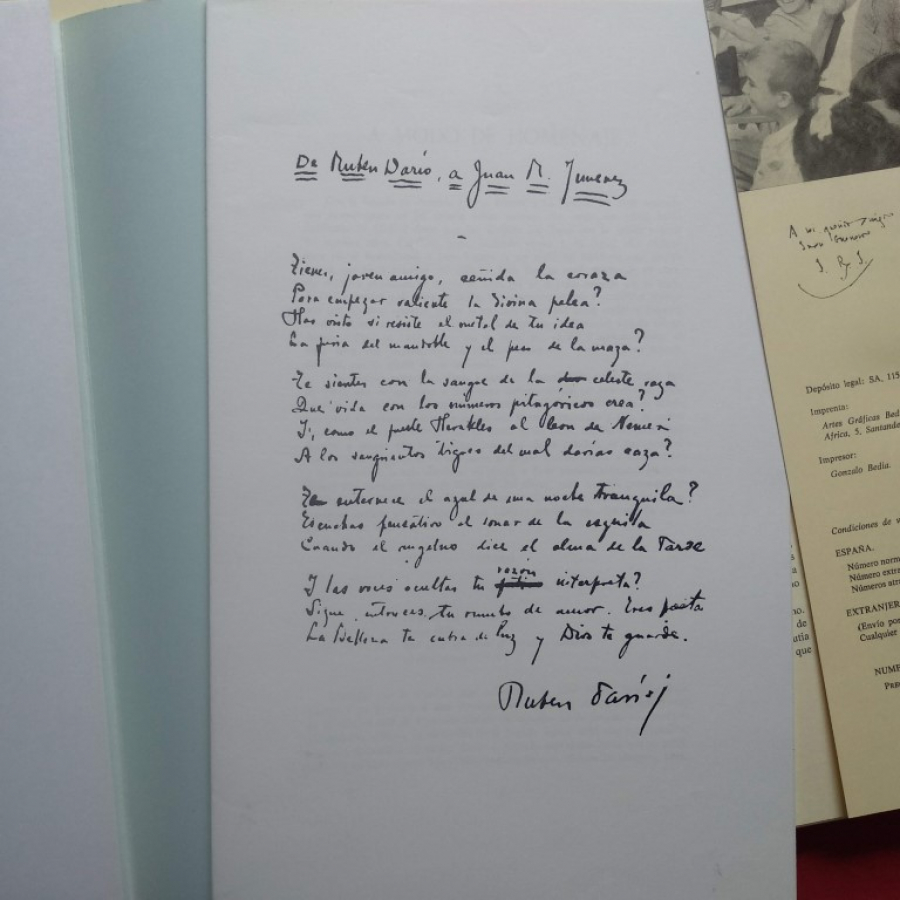 De Ruben Dario, a Juan R. Jimenez
Tienes, joven amigo, ceñida la coraza
Para empezar valiente la divina pelea?
Has visto si resiste el metal de tu idea
La furia del mandoble y el peso de la maza?
Te sientes con la sangre de la celeste raza
Que vida con los números pitagóricos crea?
I, como el fuerte Herakles al leon de Nemea
A los sangrientos tigres del mal darías caza?
Te enternece el azul de una noche tranquila?
Escuchas pensativo el sonar de la esquila
Cuando el angelus dice el alma de la tarde
I las voces ocultas tu razón interpreta?
Sigue, entonces, tu rumbo de amor. Eres poeta
La Belleza te cubra de luz y Dios te guarde.
Ruben Dario
A mi
Depósito legal: SA. 115
Imprenta:
Artes Gráficas Bed
Africa, 5. Santande
Impresor:
Gonzalo Bedia.
Condiciones de v
ESPAÑA.
Número norm
Número extra
Números atra
EXTRANJER
(Envío por
Cualquier
NUME
no.
de
atía
que